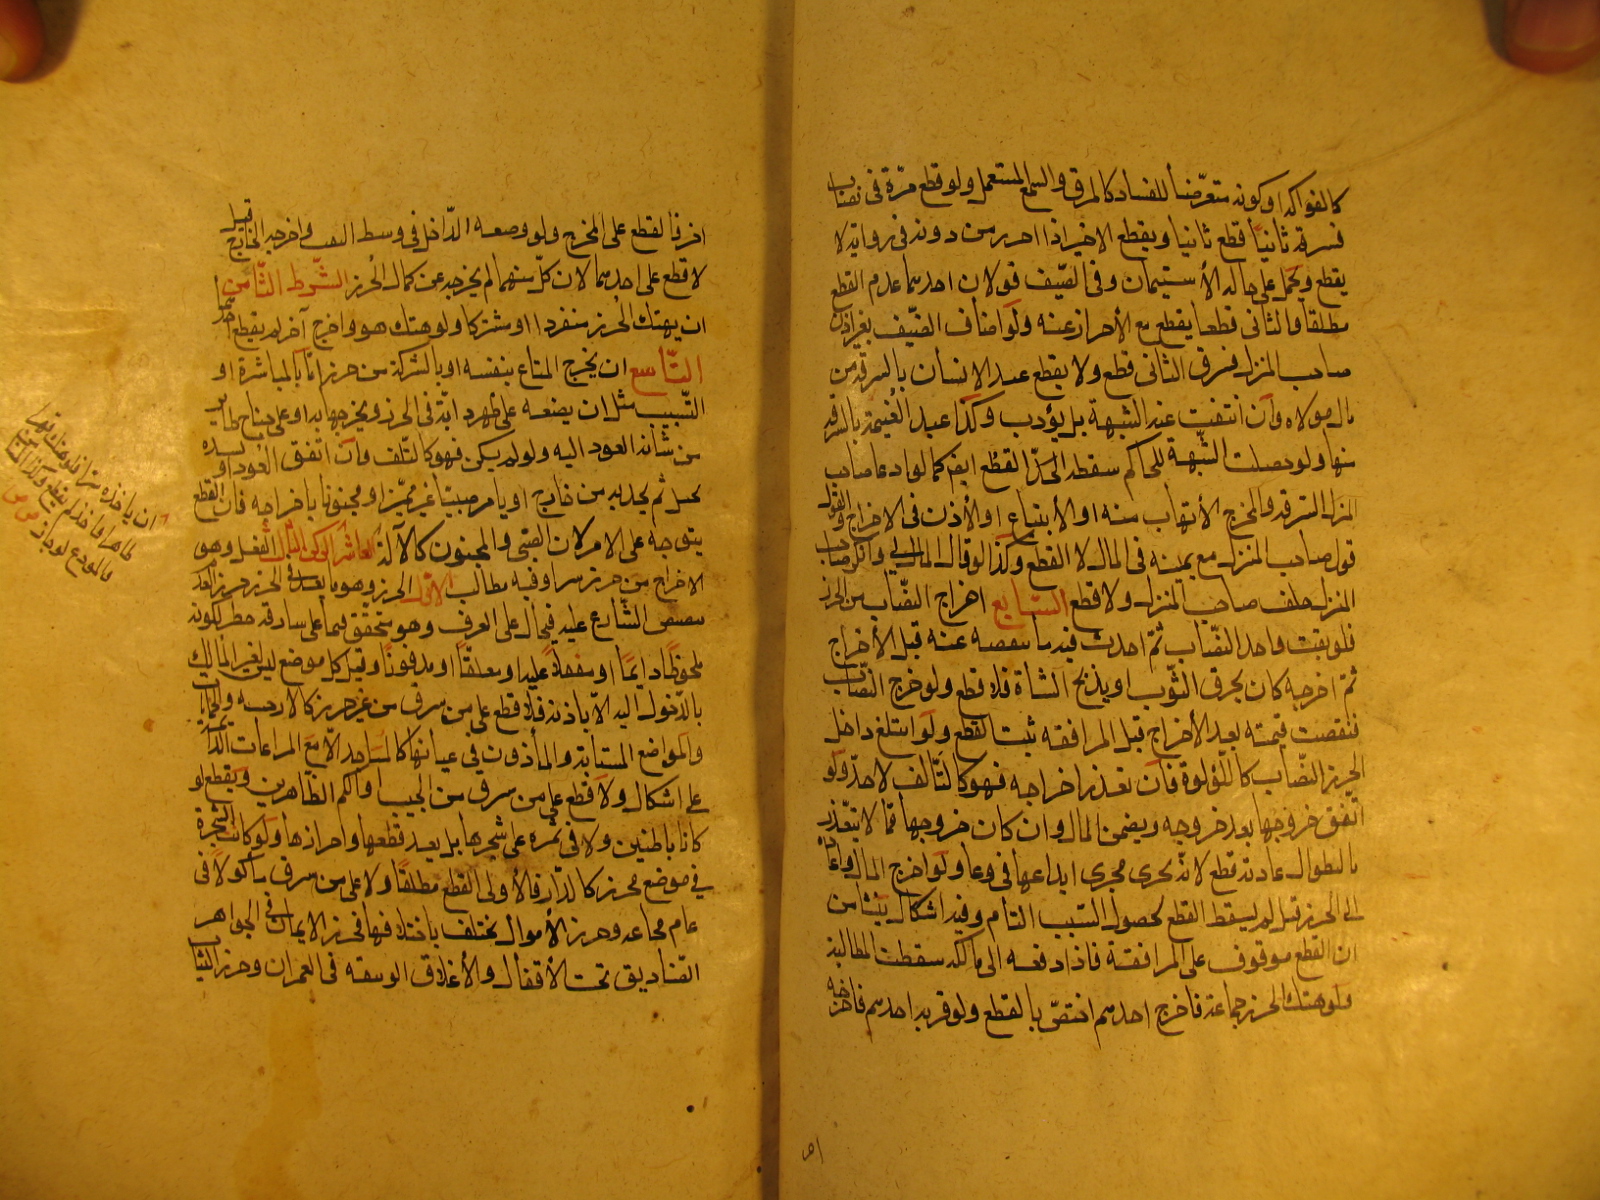 كالفواكه او كونه متعرّضا للفساد كالمرق والشمع المستعمل ولو قطع مرّة فى نصاب
فسرقه ثانياً قطع ثانيا ويقطع الاخير اذا احرز من دونه فى رواية لا
يقطع ويحمل على حالة الاستيمان وفى الضّيف قولان احدهما عدم القطع
مطلقا والثانى قطعا يقطع مع الاحراز عنه ولو اضاف الضّيف بغير اذن
صاحب المنزل فسرق الثانى قطع ولا يقطع عبد الانسان بالسرقة من
مال مولاه وان انتفت عنه الشبهة بل يؤدب وكذا عبد الغنيمة بالسرقة
منها ولو حصلت الشّبهة للحاكم سقط الحدّ القطع ايضا كما لو ادعا صاحب
المنزل السرقه والمخرج الاتهاب منه او الابتياع او الاذن فى الاخراج والقول
قول صاحب المنزل مع يمينه فى المال لا القطع وكذا لو قال المال لى وانكر صاحب
المنزل حلف صاحب المنزل ولا قطع السابع اخراج النصّاب من الحرز
فلو نقب واخذ النصّاب ثمّ احدث فيه ما ينقصه عنه قبل الاخراج
ثمّ اخرجه كان يحرق الثوّب او يذبح الشاة فلا قطع ولو خرج النصّاب
فنقصت قيمته بعد الاخراج قبل المرافقه ثبت القطع ولو ابتلع داخل
الحرز النصّاب كاللّؤلؤة فان تعذر اخراجه فهو كالتّالف لا حدّ ولو
اتّفق خروجها بعد خروجه ويضمن المال وان كان خروجها ممّا لا يتعّذر
بالنظر الى عادته قطع لانّه يجرى مجرى ايداعها فى وعا ولو اخرج المال واعاده
الى الحرز قيل لم يسقط القطع لحصول السّبب التام وفيه اشكال ينشأ من
ان القطع موقوف على المرافقة فاذا دفعه الى مالكه سقطت المطالبة
ولو هتك الحرز جماعة فاخرج احدهم اختصّ بالقطع ولو قربه احدهم فاخرجه
اخر فالقطع على المخرج ولو وضعه الدّاخل فى وسط النقب واخرجه الخارج قيل
لا قطع على احدهما لان كلّ منهما لم يخرجه عن كمال الحرز الشّرط الثّامن
ان يهتك الحرز منفردا او مشتركا ولو هتك هو واخرج آخر لم يقطع احدهما
التّاسع ان يخرج المتاع بنفسه او بالشركة من حرز امّا بالمباشرة او
التّسبيب مثل ان يضعه على ظهر دابّة فى الحرز ويخرجها به او على جناح طاير
من شانه العود اليه ولو لم يكن فهو كالتّلف وان اتفق العود او يشده
بحبل ثم يجذبه من خارج او يامر صبيّا غير مميّز او مجنونا باخراجه فان القطع
يتوجه على الامر لان الصّبى والمجنون كالآلة العاشر الركن الثالث الفعل وهو
الاخراج من حرز سرا وفيه مطالب الاوّل الحرز وهو
الشّارع عليه فيحال على العرف وهو متحقق فيما على سارقه خطر لكونه
ملحوظًا دايمًا او مقفلاً عليه او مغلقًا او مدفونًا وقيل كل موضع ليس لغير المالك
بالدّخول اليه الاّ باذنه فلا قطع على من سرق من غير حرز كالارحيه والحمامات
والمواضع المنتابة والمأذون فى غيانها كالمساجد الاّ مع المراعات الدّائمة
على اشكال ولا قطع على من سرق من الجيب او الكم الظّاهرين ويقطع لو
كانا باطنين ولا فى ثمره على شجرها بل بعد قطعها واحرازها ولو كانت الشجرة
فى موضع محرز كالدّار فالاولى القطع مطلقًا ولا على من سرق مأكولا فى
عام مجاعه وحرز الأموال يختلف باختلافها فحرز الاثمان والجواهر
الصّناديق تحت الأقفال والأغلاق الوسقه فى العمران وحرز الثياب